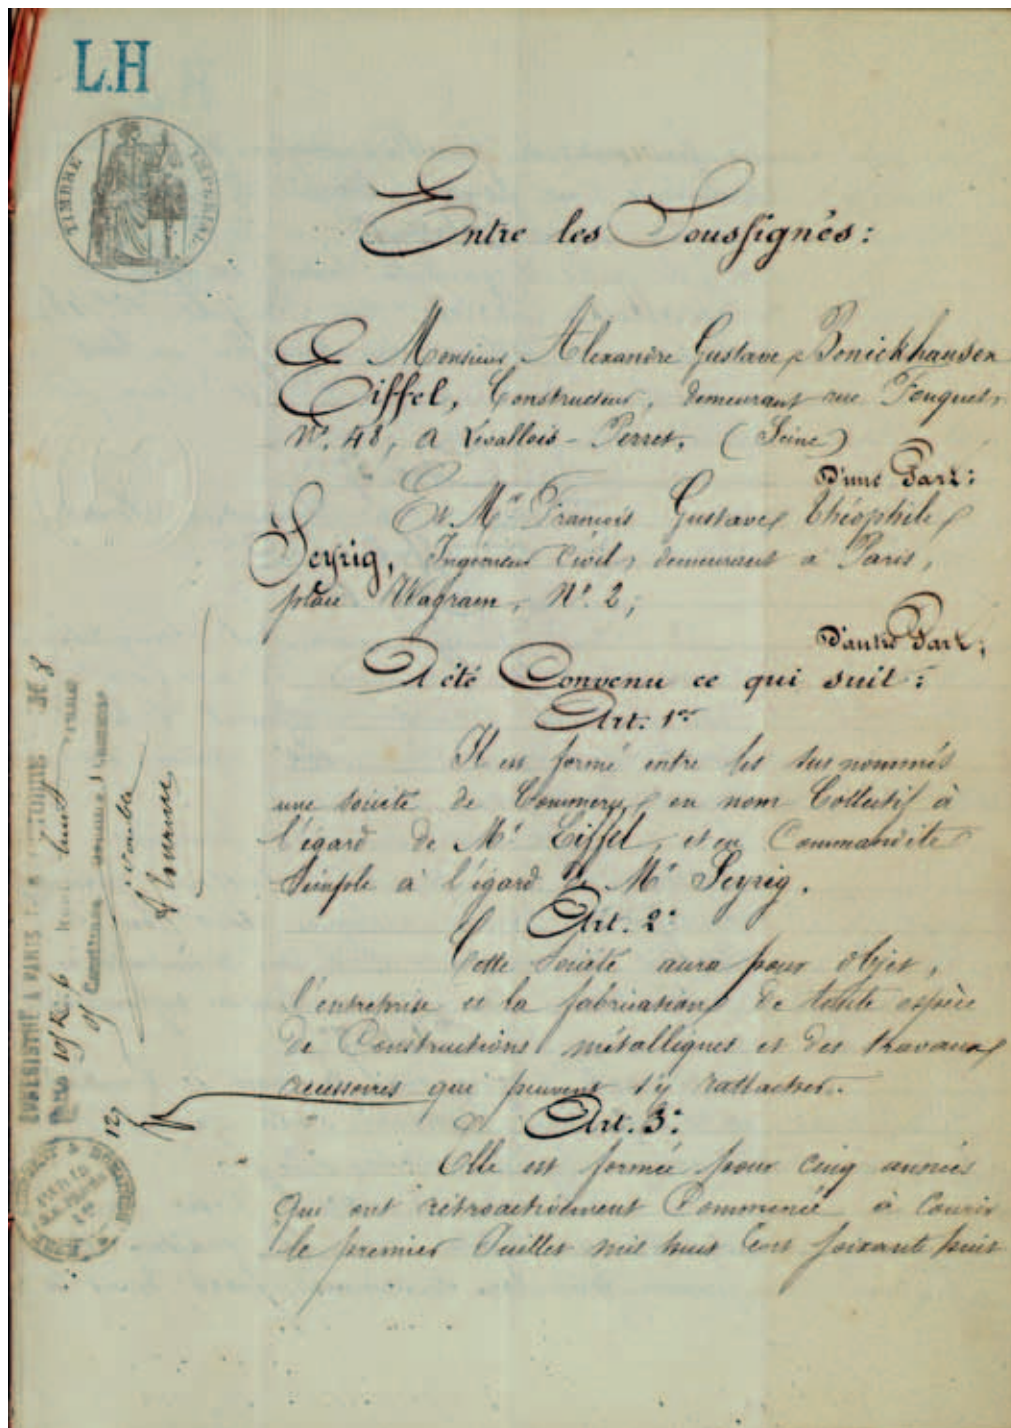 L.H
TIMBRE IMPERIAL
Entre les Soussignés :
Et Monsieur Alexandre Gustave Bonickhausen
Eiffel, Constructeur, demeurant rue Fouquet,
N°. 48, à Levallois-Perret, (Seine)
D'une Part :
Et Mr François Gustave Théophile
Seyrig, Ingénieur Civil, demeurant à Paris,
place Wagram, N°. 2,
D'autre Part ;
A été Convenu ce qui suit :
Art. 1er
Il est formé entre les sus nommés
une société de Commerce, en nom Collectif à
l'égard de Mr Eiffel, et en Commandite
Simple à l'égard de Mr Seyrig.
Art. 2°
Cette Société aura pour objet,
l'entreprise et la fabrication de toute espèce
de Constructions métalliques et des travaux
accessoires qui peuvent s'y rattacher.
Art. 3°
Elle est formée pour cinq années
qui ont rétroactivement Commencé à Courir
le premier Juillet mil huit Cent soixante huit
ENREGISTRÉ A PARIS
PARIS